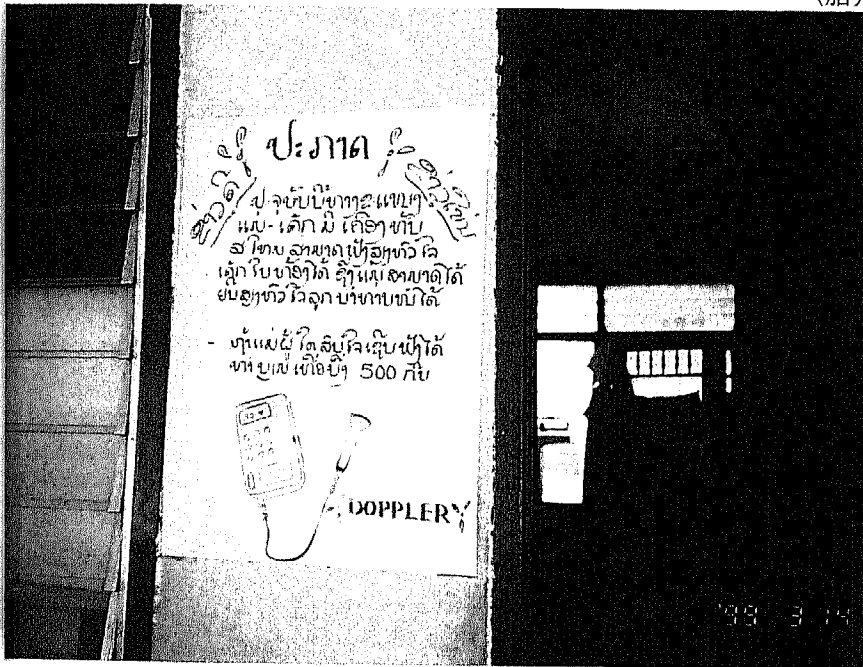 ປະກາດ
ຂ່າວດີ
ຂ່າວໃໝ່
ປະຈຸບັນນີ້ທາງຂະແໜງ
ແມ່-ເດັກ ມີ ເຄື່ອງທັນ
ສະໄໝ ສາມາດຟັງສຽງຫົວໃຈ
ເດັກໃນທ້ອງໄດ້ ຊຶ່ງແມ່ສາມາດໄດ້
ຍິນສຽງຫົວໃຈລູກ ນຳທ່ານໝໍໄດ້
- ຖ້າແມ່ຜູ້ໃດສົນໃຈເຊີນຟັງໄດ້
ເທື່ອນຶ່ງ 500 ກີບ
DOPPLER
'99 3 14